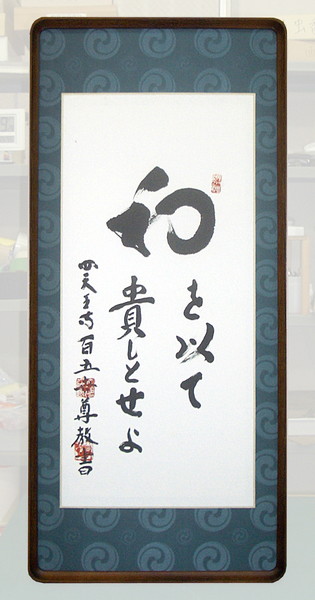 和
を以て
貴しとせよ
四天王寺 百五才 尊教書